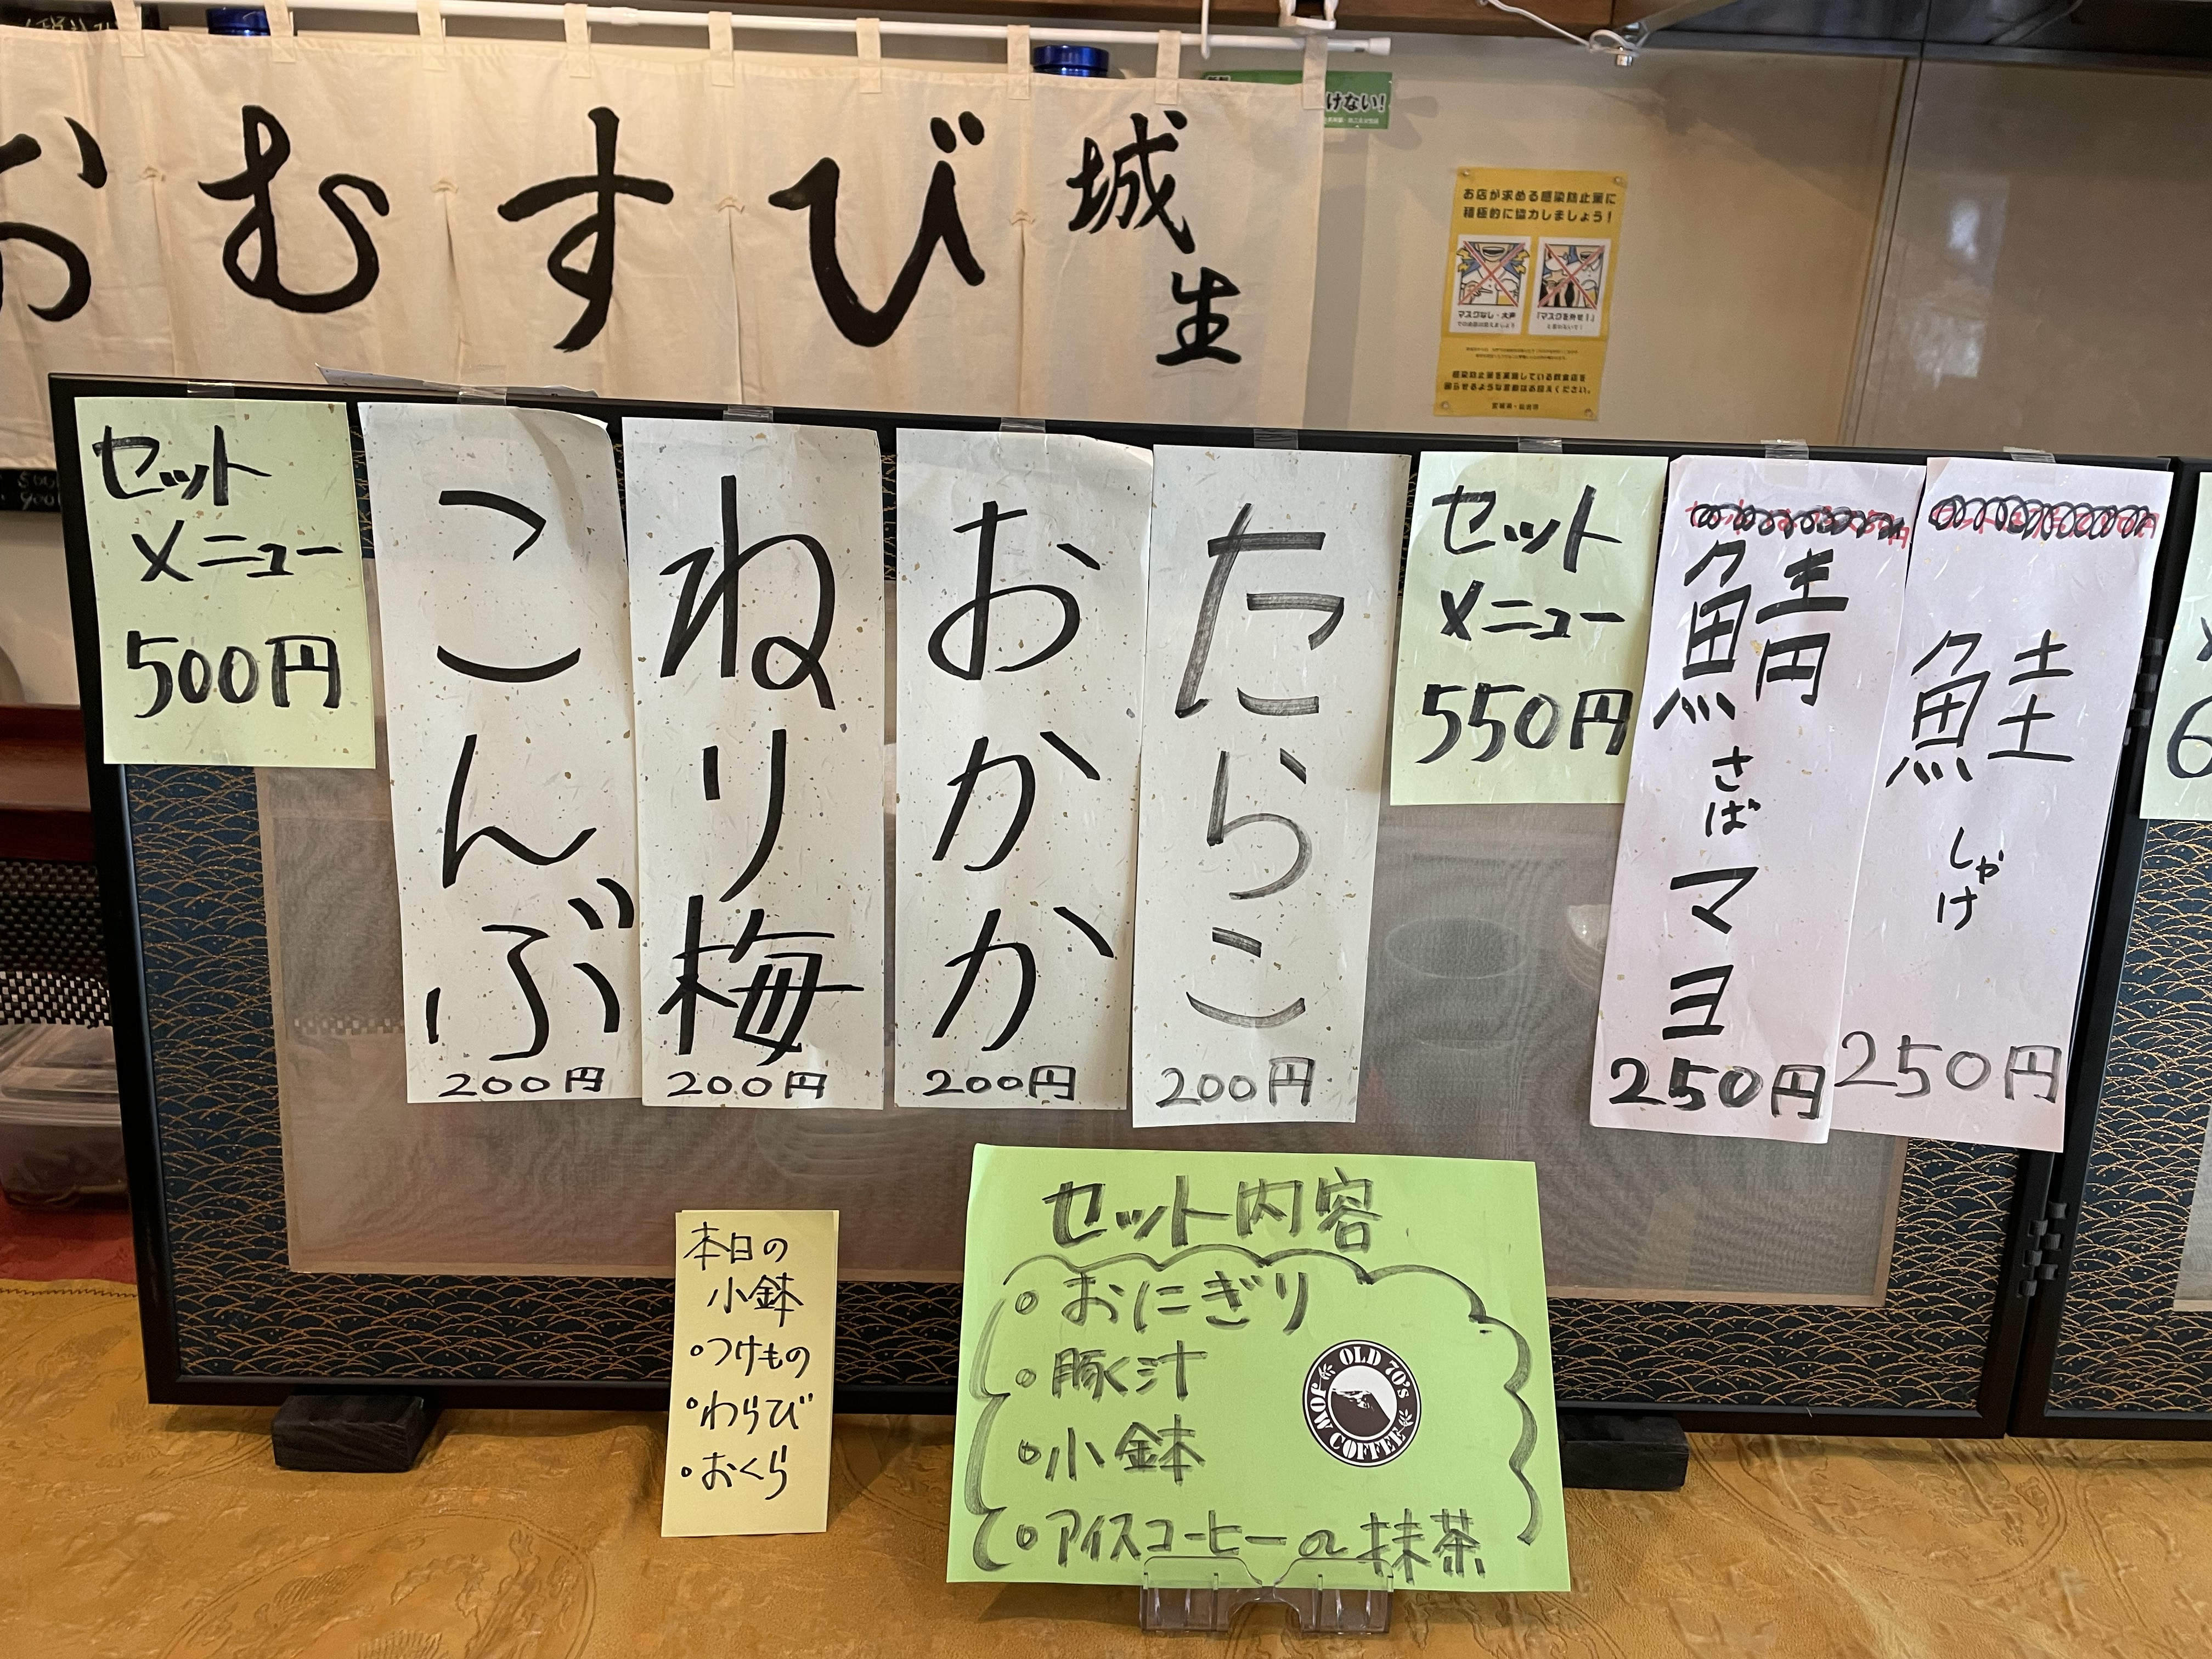 おむすび
城生
けない!
お店が求める感染防止策に
積極的に協力しましょう!
マスクなし・大声
「マスクを外せ!」
感染防止策を実施している飲食店を
困らせるような言動はお控えください。
宮城県・仙台市
セット
メニュー
500円
こんぶ
200円
ねり梅
200円
おかか
200円
たらこ
200円
セット
メニュー
550円
鯖
さば
マヨ
250円
鮭
しゃけ
250円
6
本日の
小鉢
・つけもの
・わらび
・おくら
セット内容
・おにぎり
・豚汁
・小鉢
・アイスコーヒーor抹茶
OLD 70's
WOW COFFEE